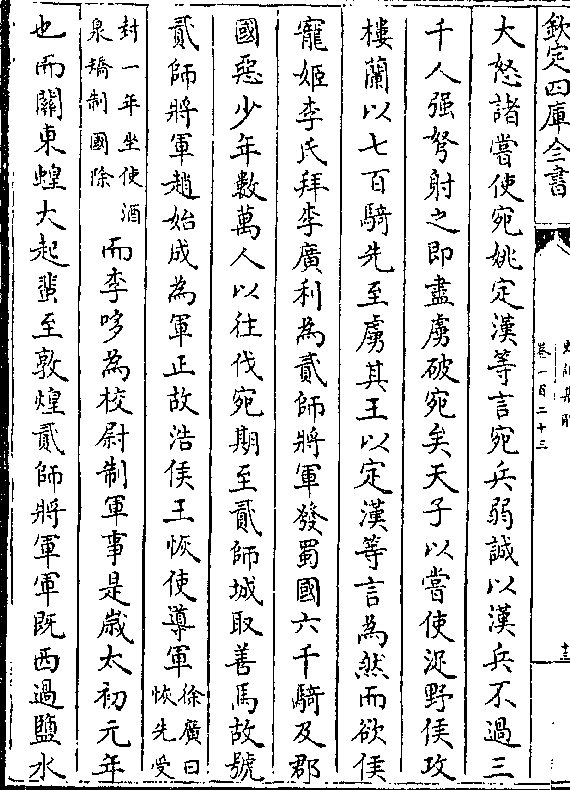 欽定四庫全書
卷一百二十三
大怒諸嘗使宛姚定漢等言宛兵弱誠以漢兵不過三
千人强弩射之即盡虜破宛矣天子以嘗使浞野侯攻
樓蘭以七百騎先至虜其王以定漢等言為然而欲侯
寵姬李氏拜李廣利為貳師將軍發蜀國六千騎及郡
國惡少年數萬人以往伐宛期至貳師城取善馬故號
貳師將軍趙始成為軍正故浩侯王恢使導軍徐廣曰恢先受
封一年坐使酒泉矯制國除而李哆為校尉制軍事是歲太初元年
也而關東蝗大起蜚至敦煌貳師將軍軍既西過鹽水